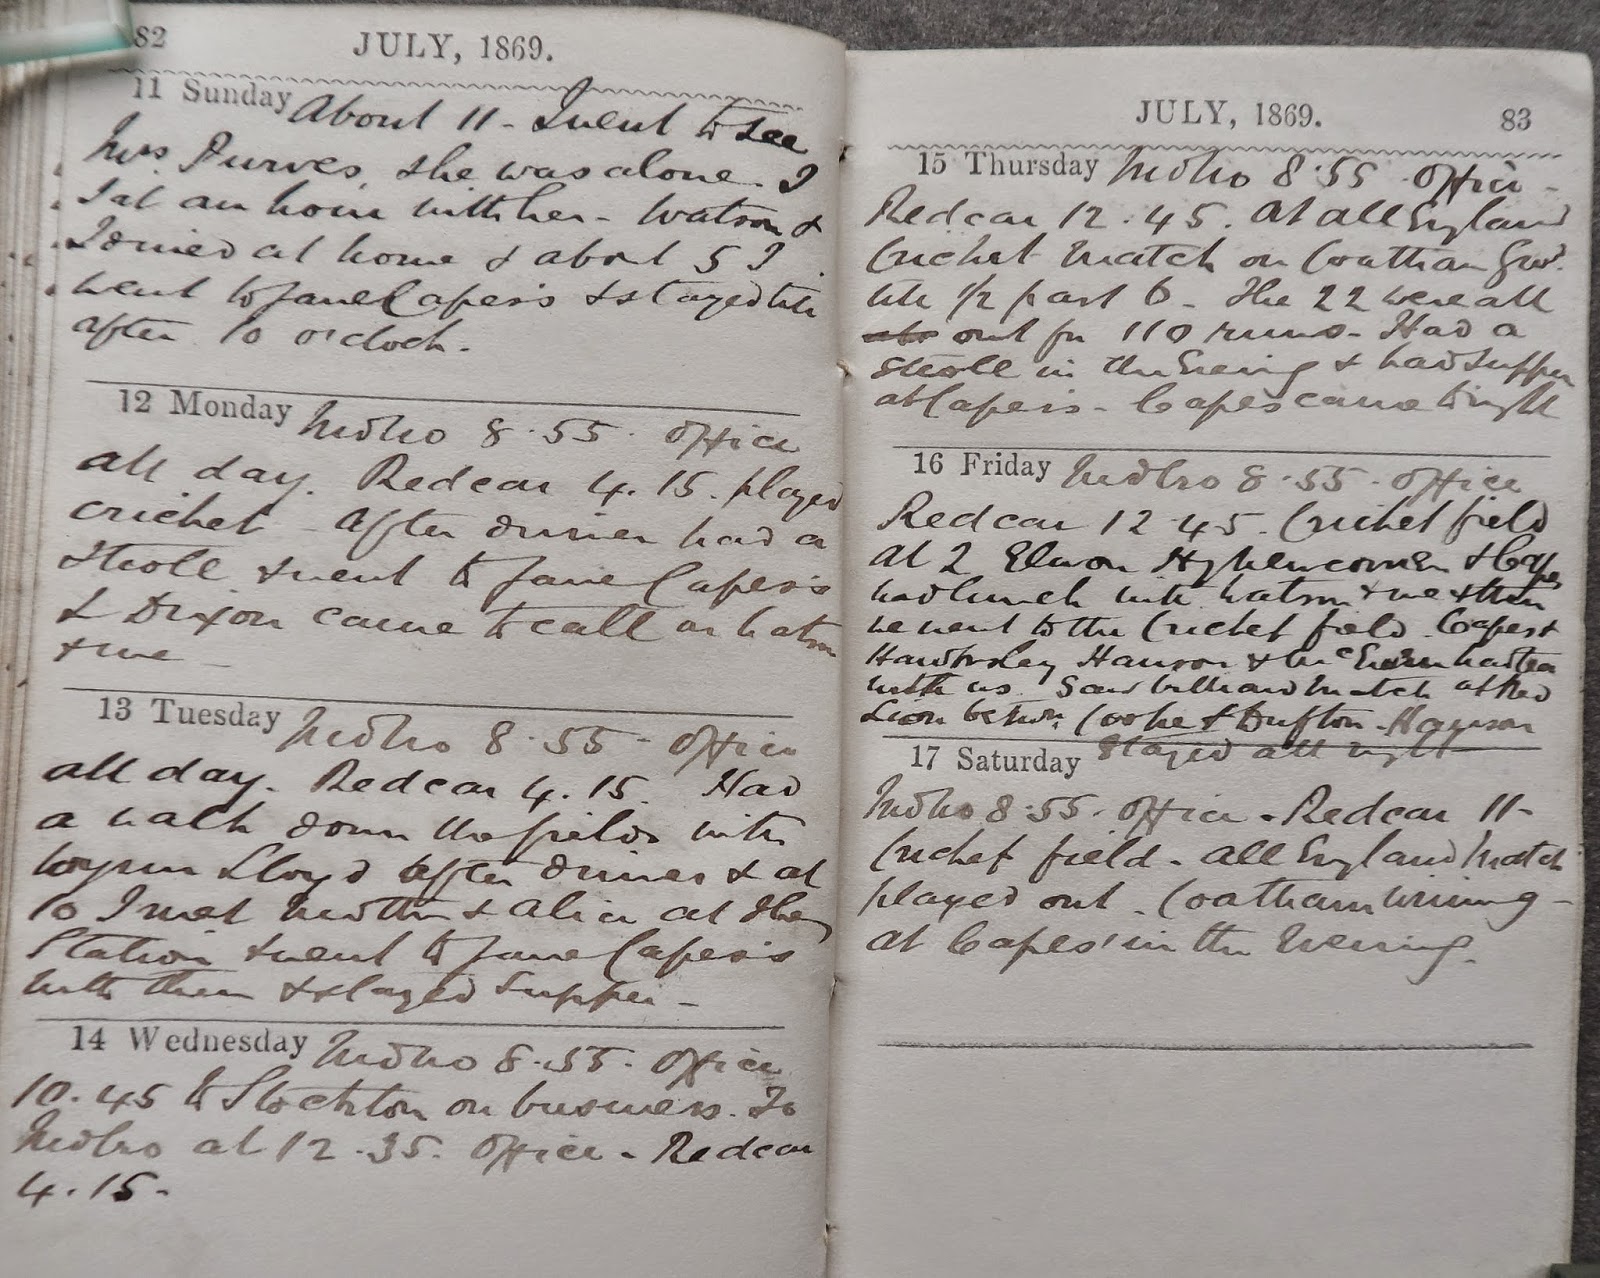 82
JULY, 1869.
11 Sunday About 11 - I went to see
Mrs. Purves, she was alone. I
sat an hour with her - Watson &
I dined at home & about 5 I
went to Jane Capes's & stayed till
after 10 o'clock.
12 Monday Mdbro 8.55. Office
all day. Redcar 4.15. played
cricket - After dinner had a
stroll & went to Jane Capes's
& Dixon came to call on Watson
& me -
13 Tuesday Mdbro 8.55 - Office
all day. Redcar 4.15. Had
a walk down the fields with
Lloyd after dinner & at
10 I met Mother & Alice at the
Station & went to Jane Capes's
with them & stayed supper -
14 Wednesday Mdbro 8.55. Office
10.45 to Stockton on business. To
Mdbro at 12.35. Office - Redcar
4.15 -
JULY, 1869.
83
15 Thursday Mdbro 8.55 Office -
Redcar 12.45. At all England
Cricket Match on Coatham Grd.
till 1/2 past 6 - The 22 were all
out for 110 runs - Had a
stroll in the Evening & had supper
at Capes's - Capes came to night
16 Friday Mdbro 8.55 - Office
Redcar 12.45. Cricket field
at 2 & Capes
had lunch with Watson & me & then
we went to the Cricket field. Capes &
Hanson & had tea
with us. Saw billiard match at Red
Lion betwn. Cooke & Dufton - Hanson
stayed all night
17 Saturday
Mdbro 8.55. Office - Redcar 11 -
Cricket field - All England Match
played out. Coatham winning -
at Capes' in the Evening.